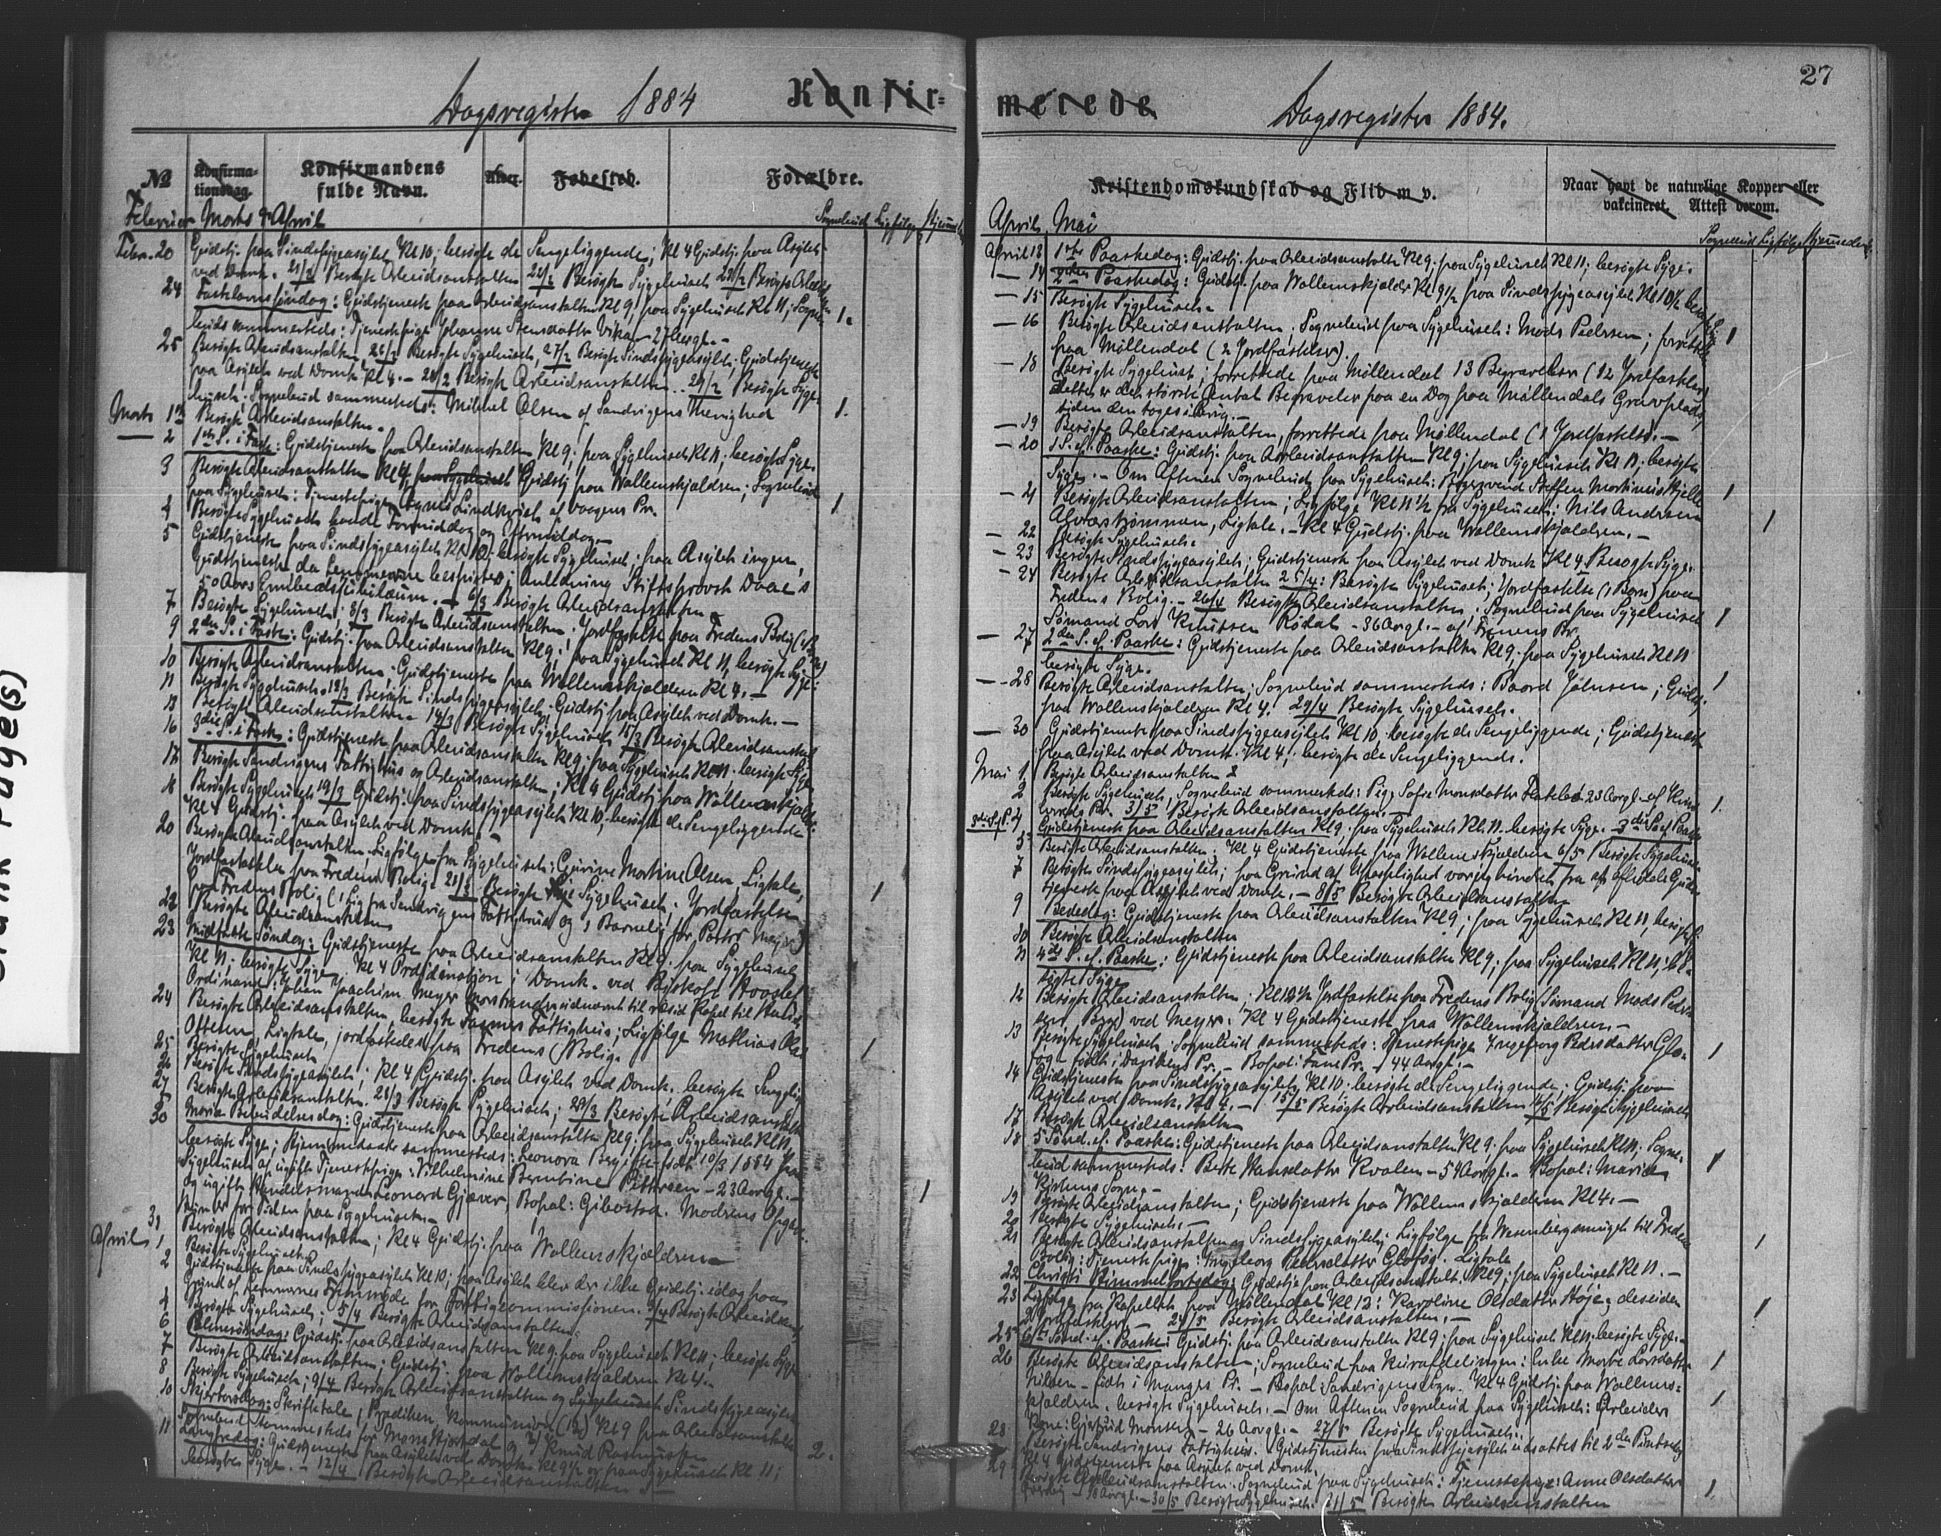 27
Dagsregister 1884
Konfir=
№
Konfirma-
tionsdag.
Konfirmandens
fulde Navn.
Alder.
Fødested.
Forældre.
Februar Marts & April
Sognebud Ligfølge Hjemmed
Febr. 20 Gudstj. paa Sindssygeasylet Kl 10; besøgte de Sengeliggende; Kl 4 Gudstj. paa Asylet
ved Domk. 21/2 Besøgte Arbeidsanstalten 22/2 Besøgte Sygehuset
24 Fastelavnssøndag: Gudstjeneste paa Arbeidsanstalten Kl 9, paa Sygehuset Kl 11; Sogne-
buds sammesteds: Tjenestepige Johanne Stensdatter Vika – 27 Aargl. – 1.
25 Besøgte Arbeidsanstalten, 26/2 Besøgte Sygehuset, 27/2 Besøgte Sindssygeasylet; Gudstjeneste
paa Asylet ved Domk Kl 4. – 28/2 Besøgte Arbeidsanstalten .. 29/2 Besøgte Syge-
huset; Sognebud sammesteds: Mikkel Olsen af Sandvigens Menighed 1.
Marts 1ste Besøgte Arbeidsanstalten.
2 1ste S. i Faste: Gudstjeneste paa Arbeidsanstalten Kl 9; paa Sygehuset Kl 11; besøgte Syge.
3 Besøgte Arbeidsanstalten Kl 4 paa Sygehuset Gudstj. paa Wollemskjældren. Sognebud
paa Sygehuset: Tjenestepige Agnes Lindkvist af Vaagens Pr. 1
4 Besøgte Sygehuset baade Formiddag og Eftermiddag.
5 Gudstjeneste paa Sindssygeasylet Kl 10; besøgte Sygehuset; paa Asylet ingen
Gudstjeneste da Lemmerne bespistes i Anledning Stiftsprovst Daae's
50 Aars Embedsjubilæum. – 6/3 Besøgte Arbeidsanstalten
7 Besøgte Sygehuset; 8/3 Besøgte Arbeidsanstalten; Jordfæstelse paa Fredens Bolig
9 2den S. i Faste: Gudstj. paa Arbeidsanstalten Kl 9; paa Sygehuset Kl 11, besøgte Syge
10 Besøgte Arbeidsanstalten; Gudstjeneste paa Wollemskjældren Kl 4. –
11 Besøgte Sygehuset. 12/3 Besøgte Sindssygeasylet. Gudstj. paa Asylet ved Domk. –
13 Besøgte Arbeidsanstalten. 14/3 Besøgte Sygehuset 15/3 Besøgte Arbeidsanstalt
16 3die S. i Faste: Gudstjeneste paa Arbeidsanstalten Kl 9; paa Sygehuset Kl 11. besøgte Syge
17 Besøgte Sandvigens Fattighus og Arbeidsanstalten; Kl 4 Gudstj. paa Wollemskjæld.
18 Besøgte Sygehuset 19/3 Gudstj. paa Sindssygeasylet Kl 10, besøgte de Sengeliggende
Kl 4 Gudstj. paa Asylet ved Domk. –
20 Besøgte Arbeidsanstalten, Ligfølge fra Sygehuset: Gurine Martine Olsen, Ligtale,
Jordfæstelse paa Fredens Bolig. 21/3 Besøgte Sygehuset; Jordfæstelse 1
paa Fredens Bolig (1 Lig fra Sandvigens Fattighus og 1 Barnelig for Pastor Meyer)
22 Besøgte Arbeidsanstalten
23 Midfaste Søndag: Gudstjeneste paa Arbeidsanstalten Kl 9. paa Sygehuset
Kl 11; besøgte Syge. Kl 4 Ordination i Domk. ved Biskop
Ordinand: Johan Joachim Meyer
24 Besøgte Arbeidsanstalten, besøgte Fattighus; Ligfølge Mathias
Ligtale, jordfæstedes paa Fredens Bolig. 1
25 Besøgte Sygehuset
26 Besøgte Sindssygeasylet; Kl 4 Gudstj. paa Asylet ved Domk. besøgte Sengelig
27 Besøgte Arbeidsanstalten. 28/3 Besøgte Sygehuset; 29/3 Besøgte Arbeidsanstalt
30 Mariæ Bebudelsesdag: Gudstjeneste paa Arbeidsanstalten Kl 9; paa Sygehuset Kl 11,
besøgte Syge; Hjemmedaab sammesteds: Leonora Birgitte født 10/3 1884 paa
Sygehuset af ugift Tjenestepige: Vilhelmine Berntine Pettersen – 23 Aargl. – 1
og ugift Handelsmand Leonard Gjæver, Bopæl: Gibostad. Modrens Opgav.
for Tiden paa Sygehuset. –
31 Besøgte Arbeidsanstalten; Kl 4 Gudstj. paa Wollemskjældren
April 1 Besøgte Sygehuset
2 Gudstjeneste paa Sindssygeasylet Kl 10; paa Asylet blev der ikke Gudstj. idag paa
Grund af Lemmernes Fremmøde for Fattigkommissionen. 3/4 Besøgte Arbeidsanst
4 Besøgte Sygehuset; 5/4 Besøgte Arbeidsanstalten.
6 Palmesøndag: Gudstj. paa Arbeidsanstalten Kl 9, paa Sygehuset Kl 11; besøgte Syge
7 Besøgte Arbeidsanstalten; Gudstj. paa Wollemskjældren Kl 4.
8 Besøgte Sygehuset; 9/4 Besøgte Arbeidsanstalten og Sindssygeasylet
10 Skjærtorsdag: Skriftetale, Prædiken, Kommunion Kl 9 paa Arbeidsanstalten
Sognebud sammesteds for Mons Hjortdal og Knud Rasmussen 2.
11 Langfredag: Gudstjeneste paa Asylet ved Domk. Kl 9 1/2 og paa Sygehuset Kl 11;
besøgte Syge. – 12/4 Besøgte Arbeidsanstalten
merede
Dagsregister 1884.
Kristendomskundskab og Flid m. v.
Naar havt de naturlige Kopper eller
vakcineret. Attest derom.
April, Mai
Sognebud Ligfølge Hjemmedaab
April 13 1ste Paaskedag: Gudstj. paa Arbeidsanstalten Kl 9. paa Sygehuset Kl 11; besøgte Syge.
– 14 2den Paaskedag: Gudstj. paa Wollemskjældr Kl 9 1/2 paa Sindssygeasylet Kl 10 1/2
– 15 Besøgte Sygehuset.
– 16 Besøgte Arbeidsanstalten; Sognebud paa Sygehuset: Mads Pedersen; forrettede 1
paa Møllendal (2 Jordfæstelser)
– 18 Besøgte Sygehuset; forrettede paa Møllendal 13 Begravelser (12 Jordfæstelser)
Dette er det største Antal Begravelser paa en Dag paa Møllendals Gravplads
siden den toges i Brug. –
– 19 Besøgte Arbeidsanstalten, forrettede paa Møllendal (1 Jordfæstelse). –
– 20 1 S. ef. Paaske: Gudstj. paa Arbeidsanstalten Kl 9; paa Sygehuset Kl 11. besøgte
Syge. – Om Aftenen Sognebud paa Sygehuset: Steffen Martinius Kjelle 1
– 21 Besøgte Arbeidsanstalten; Ligfølge Kl 11 1/2 fra Sygehuset: Nils Andreas
Ligtale. – Kl 4 Gudstj. paa Wollemskjældren. – 1
– 22 Besøgte Sygehuset.
– 23 Besøgte Sindssygeasylet; Gudstjeneste paa Asylet ved Domk Kl 4. Besøgte Syge.
– 24 Besøgte Arbeidsanstalten 25/4: Besøgte Sygehuset; Jordfæstelse (1 Barn) paa
Fredens Bolig. – 26/4 Besøgte Arbeidsanstalten. Sognebud paa Sygehuset 1
Sømand Lars Knutsen Rødal – 36 Aargl. – af
– 27 2den S. ef. Paaske: Gudstjeneste paa Arbeidsanstalten Kl 9. paa Sygehuset Kl 11
besøgte Syge.
– 28 Besøgte Arbeidsanstalten; Sognebud sammesteds: Baard Johnsen; Gudstj. 1
paa Wollemskjældren Kl 4. 29/4 Besøgte Sygehuset.
– 30 Gudstjeneste paa Sindssygeasylet Kl 10. besøgte de Sengeliggende; Gudstjeneste
paa Asylet ved Domk. Kl 4; besøgte de Sengeliggende.
Mai 1 Besøgte Arbeidsanstalten
2 Besøgte Sygehuset, Sognebud sammesteds: Pige Sofie Monsdatter Flatebø 23 Aargl. – af 1.
Pr. 3/5 Besøgte Arbeidsanstalten. –
4 Gudstjeneste paa Arbeidsanstalten Kl 9. paa Sygehuset Kl. 11. besøgte Syge. – 3die S. ef Paaske
5 Besøgte Arbeidsanstalten. Kl 4 Gudstjeneste paa Wollemskjældren 6/5 Besøgte Sygehuset
7 Besøgte Sindssygeasylet; paa Grund af Upasselighed var jeg hindret fra at afholde Guds-
tjeneste paa Asylet ved Domk. – 8/5 Besøgte Arbeidsanstalten
9 Bededag: Gudstjeneste paa Arbeidsanstalten Kl 9; paa Sygehuset Kl 11, besøgte S.
10 Besøgte Arbeidsanstalten
11 4de S. ef. Paaske: Gudstjeneste paa Arbeidsanstalten Kl 9; paa Sygehuset Kl 11; be-
søgte Syge
12 Besøgte Arbeidsanstalten; Jordfæstelse paa Fredens Bolig (Sømand Mads Peder-
sen) ved Meyer. Kl 4 Gudstjeneste paa Wollemskjældren. –
13 Besøgte Sygehuset; Sognebud sammesteds: Tjenestepige Ingeborg Pedersdatter Glo- 1
født i Davikens Pr. – Bopæl: Fane Pr. – 44 Aargl. –
14 Gudstjeneste paa Sindssygeasylet Kl 10. besøgte de Sengeliggende; Gudstj. paa
Asylet ved Domk. Kl 4. – 15/5 Besøgte Arbeidsanstalten 16/5 Besøgte Sygehuset
17 Besøgte Arbeidsanstalten
18 5 Sønd. ef. Paaske: Gudstjeneste paa Arbeidsanstalten Kl 9. paa Sygehuset Kl 11. Sogne-
bud sammesteds: Berte Hansdatter Kvalen – 54 Aargl. – Bopæl: Mariæ 1
Kirkens Sogn. –
19 Besøgte Arbeidsanstalten; Gudstjeneste paa Wollemskjældren Kl 4. –
20 Besøgte Sygehuset. –
21 Besøgte Arbeidsanstalten og Sindssygeasylet; Ligfølge fra til Fredens 1
Bolig: Tjenestepige: Ingeborg Pedersdatter Ligtale
22 Christi Himmelfartsdag: Gudstj. paa Arbeidsanstalt Kl 9. paa Sygehuset Kl 11. –
23 Ligfølge fra Kapellet paa Møllendal Kl 12: Karoline Olsdatter Høje; desuden 1
2 Jordfæstelser. – 24/5 Besøgte Arbeidsanstalten. –
25 6te Sønd. ef. Paaske: Gudstj. paa Arbeidsanstalten Kl 9. paa Sygehuset Kl 11. besøgte Syge. –
26 Besøgte Arbeidsanstalten; Sognebud paa Kurafdelingen: Enke Marte Larsdatter 1
født i Manger Pr. – Bopæl: Sandvigens Sogn. Kl 4 Gudstj. paa Wollems-
kjældren. besøgte Sygehuset. – Om Aftenen Sognebud paa Sygehuset: Arbeiders 1
Kone: Gjertrud Monsen – 26 Aargl. – 27/5 Besøgte Sygehuset.
28 Besøgte Sandvigens Fattighus. Gudstjenesten paa Sindssygeasylet udsættes til 2den Pintsedag
Kl 4 Gudstjeneste paa Asylet ved Domk.
29 Besøgte Arbeidsanstalten. Sognebud paa Sygehuset: Tjenestepige: Anne Olsdatter 1.
Aargl. – 30/5 Besøgte Sygehuset. 31/5 Besøgte Arbeidsanstalten
page(s)